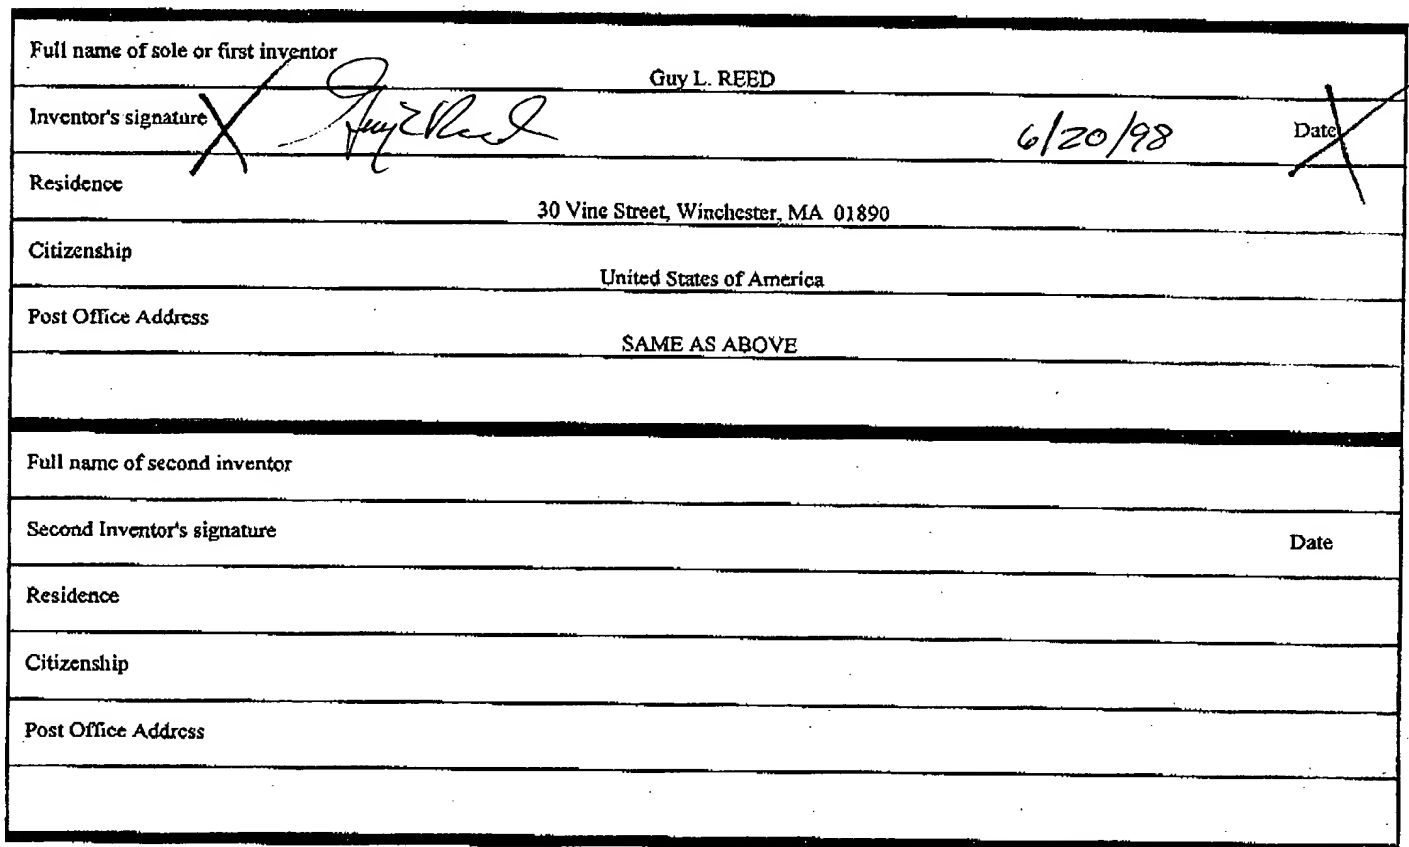 Full name of sole or first inventor
Guy L. REED
Inventor's signature X Guy L Reed 6/20/98 Date X
Residence
30 Vine Street, Winchester, MA 01890
Citizenship
United States of America
Post Office Address
SAME AS ABOVE
Full name of second inventor
Second Inventor's signature Date
Residence
Citizenship
Post Office Address